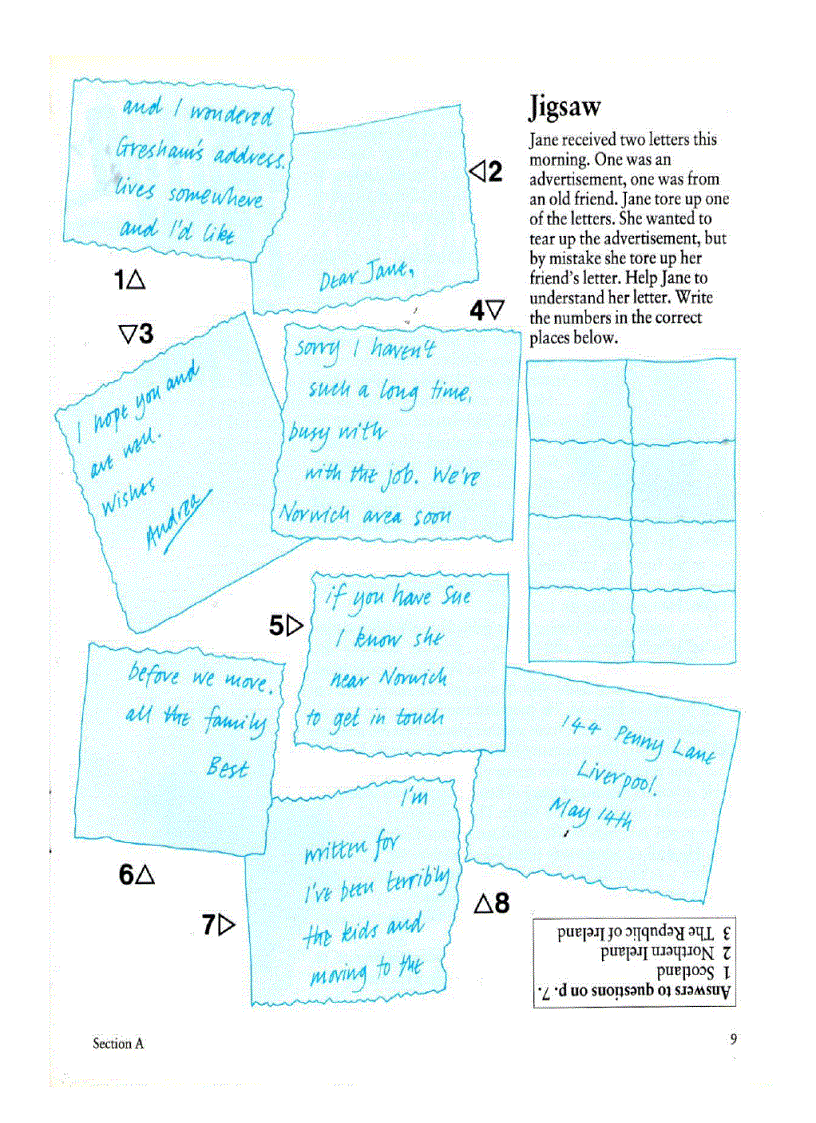 Jigsaw
Jane received two letters this
morning. One was an
advertisement, one was from
an old friend. Jane tore up one
of the letters. She wanted to
tear up the advertisement, but
by mistake she tore up her
friend's letter. Help Jane to
understand her letter. Write
the numbers in the correct
places below.
and I wondered
Gresham's address.
lives somewhere
and I'd like
1△
◁2
Dear Jane,
▽3
I hope you and
are well.
Wishes
Andrea
4▽
sorry I haven't
such a long time,
busy with
with the job. We're
Norwich area soon
5▷
if you have Sue
I know she
near Norwich
to get in touch
before we move.
all the family
Best
6△
7▷
I'm
written for
I've been terribly
the kids and
moving to the
144 Penny Lane
Liverpool.
May 14th
△8
Answers to questions on p. 7.
1 Scotland
2 Northern Ireland
3 The Republic of Ireland
Section A
9